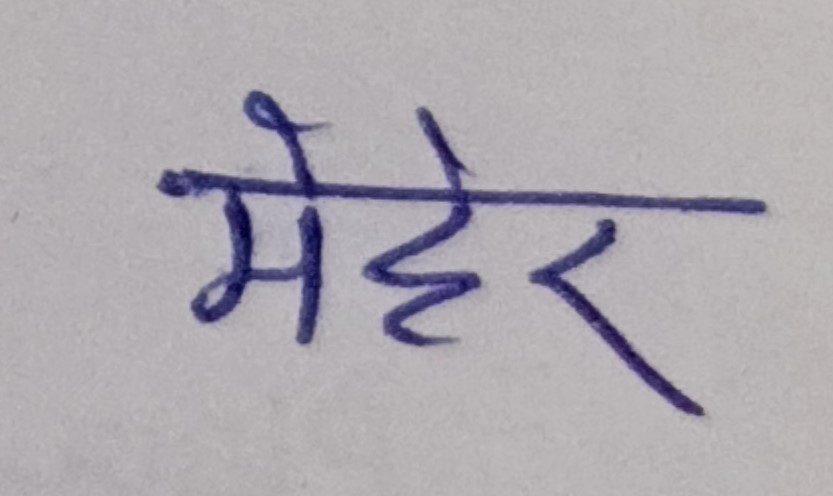 मेहेर